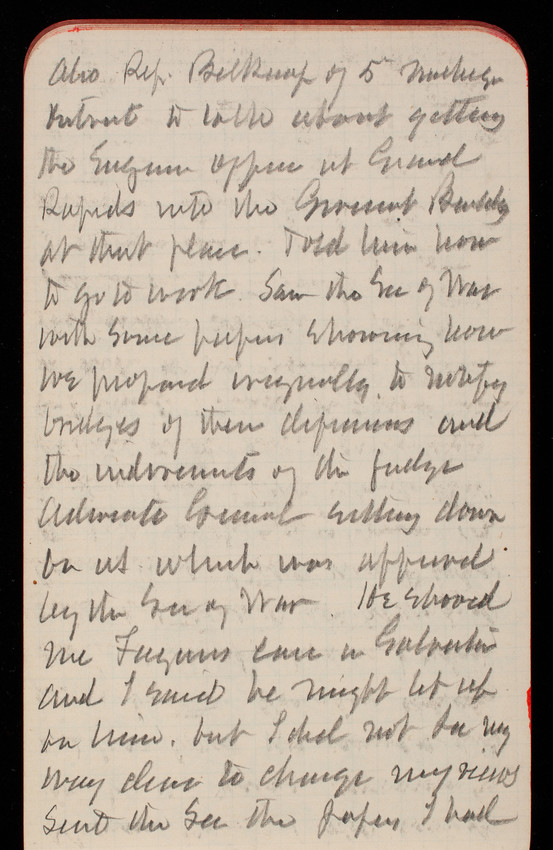 Also Rep. Belknap of 5 Michigan
District to talk about getting
the Engineer office at Grand
Rapids into the Government Building
at that place. Told him how
to go to work. Saw the Sec of War
with some papers showing how
we proposed originally to notify
bridges of their and
the indorsements of the Judge
Advocate General sitting down
on us which was approved
by the Sec of War. He showed
me case in Galveston
and I said he might let up
on him. but I did not see my
way clear to change my views
Sent the Sec the papers I had